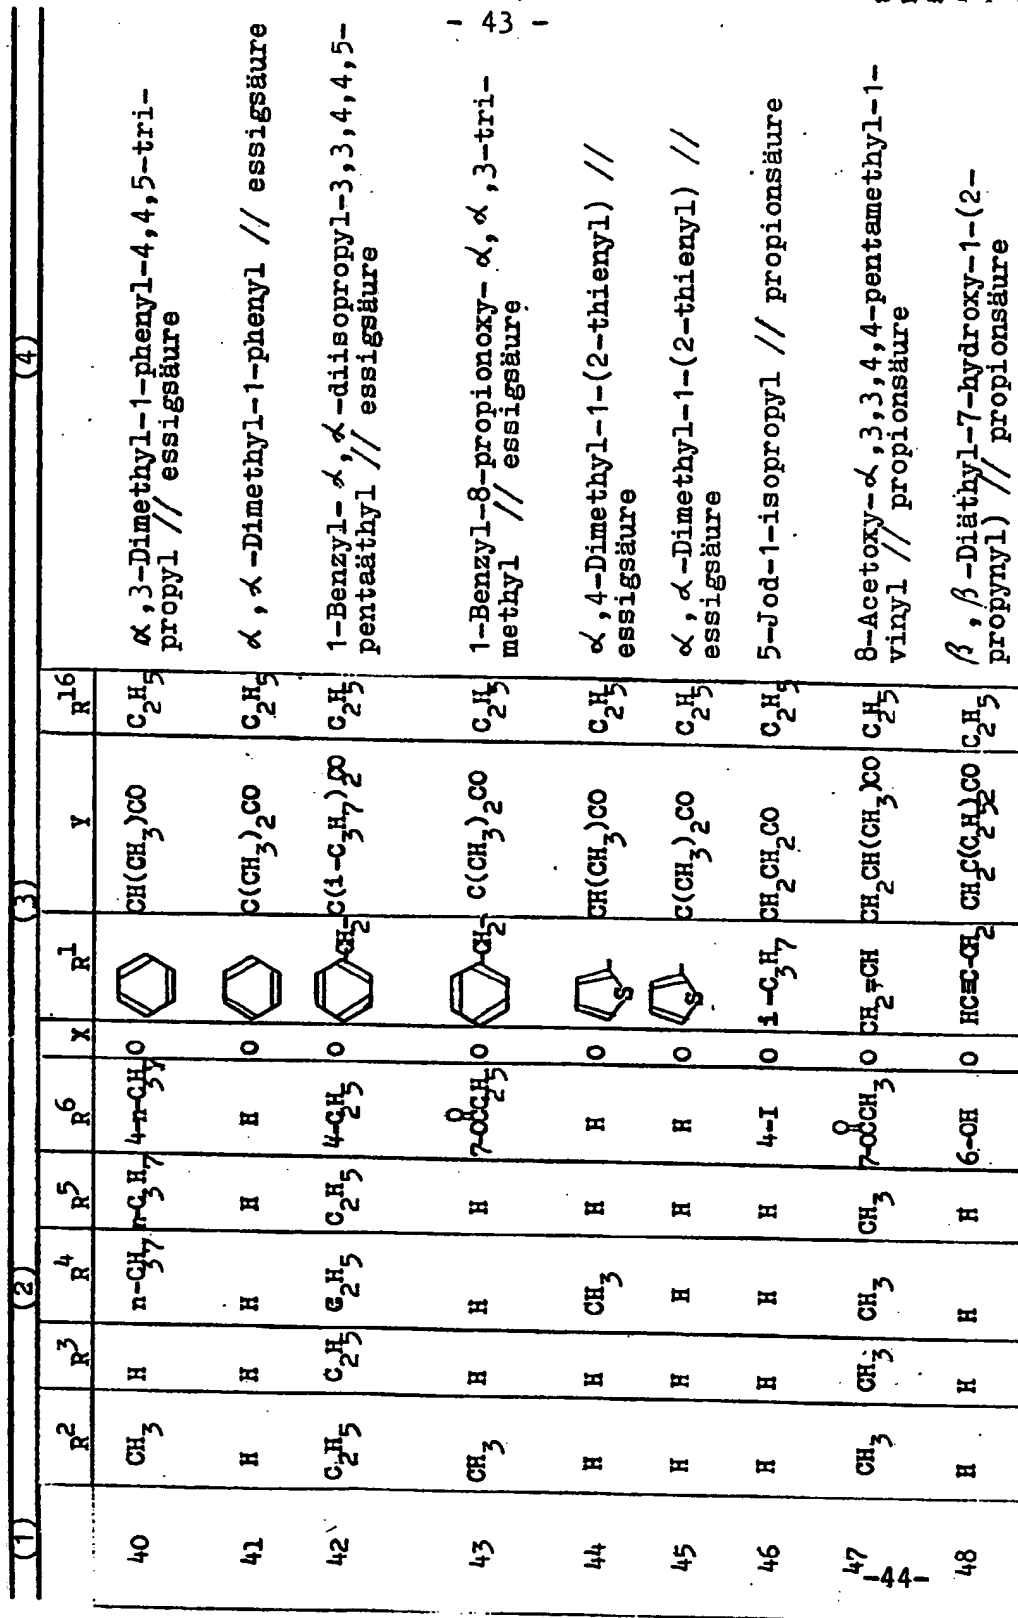 - 43 -
(1) (2) (3) (4)
R2 R3 R4 R5 R6 X R1 Y R16
40 CH3 H n-C3H7 n-C3H7 4-n-C3H7 O CH(CH3)CO C2H5 α,3-Dimethyl-1-phenyl-4,4,5-tri-
propyl // essigsäure
41 H H H H H O C(CH3)2CO C2H5 α,α-Dimethyl-1-phenyl // essigsäure
42 C2H5 C2H5 C2H5 C2H5 4-C2H5 O -CH2- C(i-C3H7)2CO C2H5 1-Benzyl-α,α-diisopropyl-3,3,4,4,5-
pentaäthyl // essigsäure
43 CH3 H H H 7-OCC2H5 O O -CH2- C(CH3)2CO C2H5 1-Benzyl-8-propionoxy-α,α,3-tri-
methyl // essigsäure
44 H H CH3 H H O S CH(CH3)CO C2H5 α,4-Dimethyl-1-(2-thienyl) //
essigsäure
45 H H H H H O S C(CH3)2CO C2H5 α,α-Dimethyl-1-(2-thienyl) //
essigsäure
46 H H H H 4-I O i-C3H7 CH2CH2CO C2H5 5-Jod-1-isopropyl // propionsäure
47 CH3 CH3 CH3 CH3 7-OCCH3 O O CH2=CH CH2CH(CH3)CO C2H5 8-Acetoxy-α,3,3,4,4-pentamethyl-1-
vinyl // propionsäure
48 H H H H 6-OH O HC≡C-CH2 CH2C(C2H5)2CO C2H5 β,β-Diäthyl-7-hydroxy-1-(2-
propynyl) // propionsäure
-44-